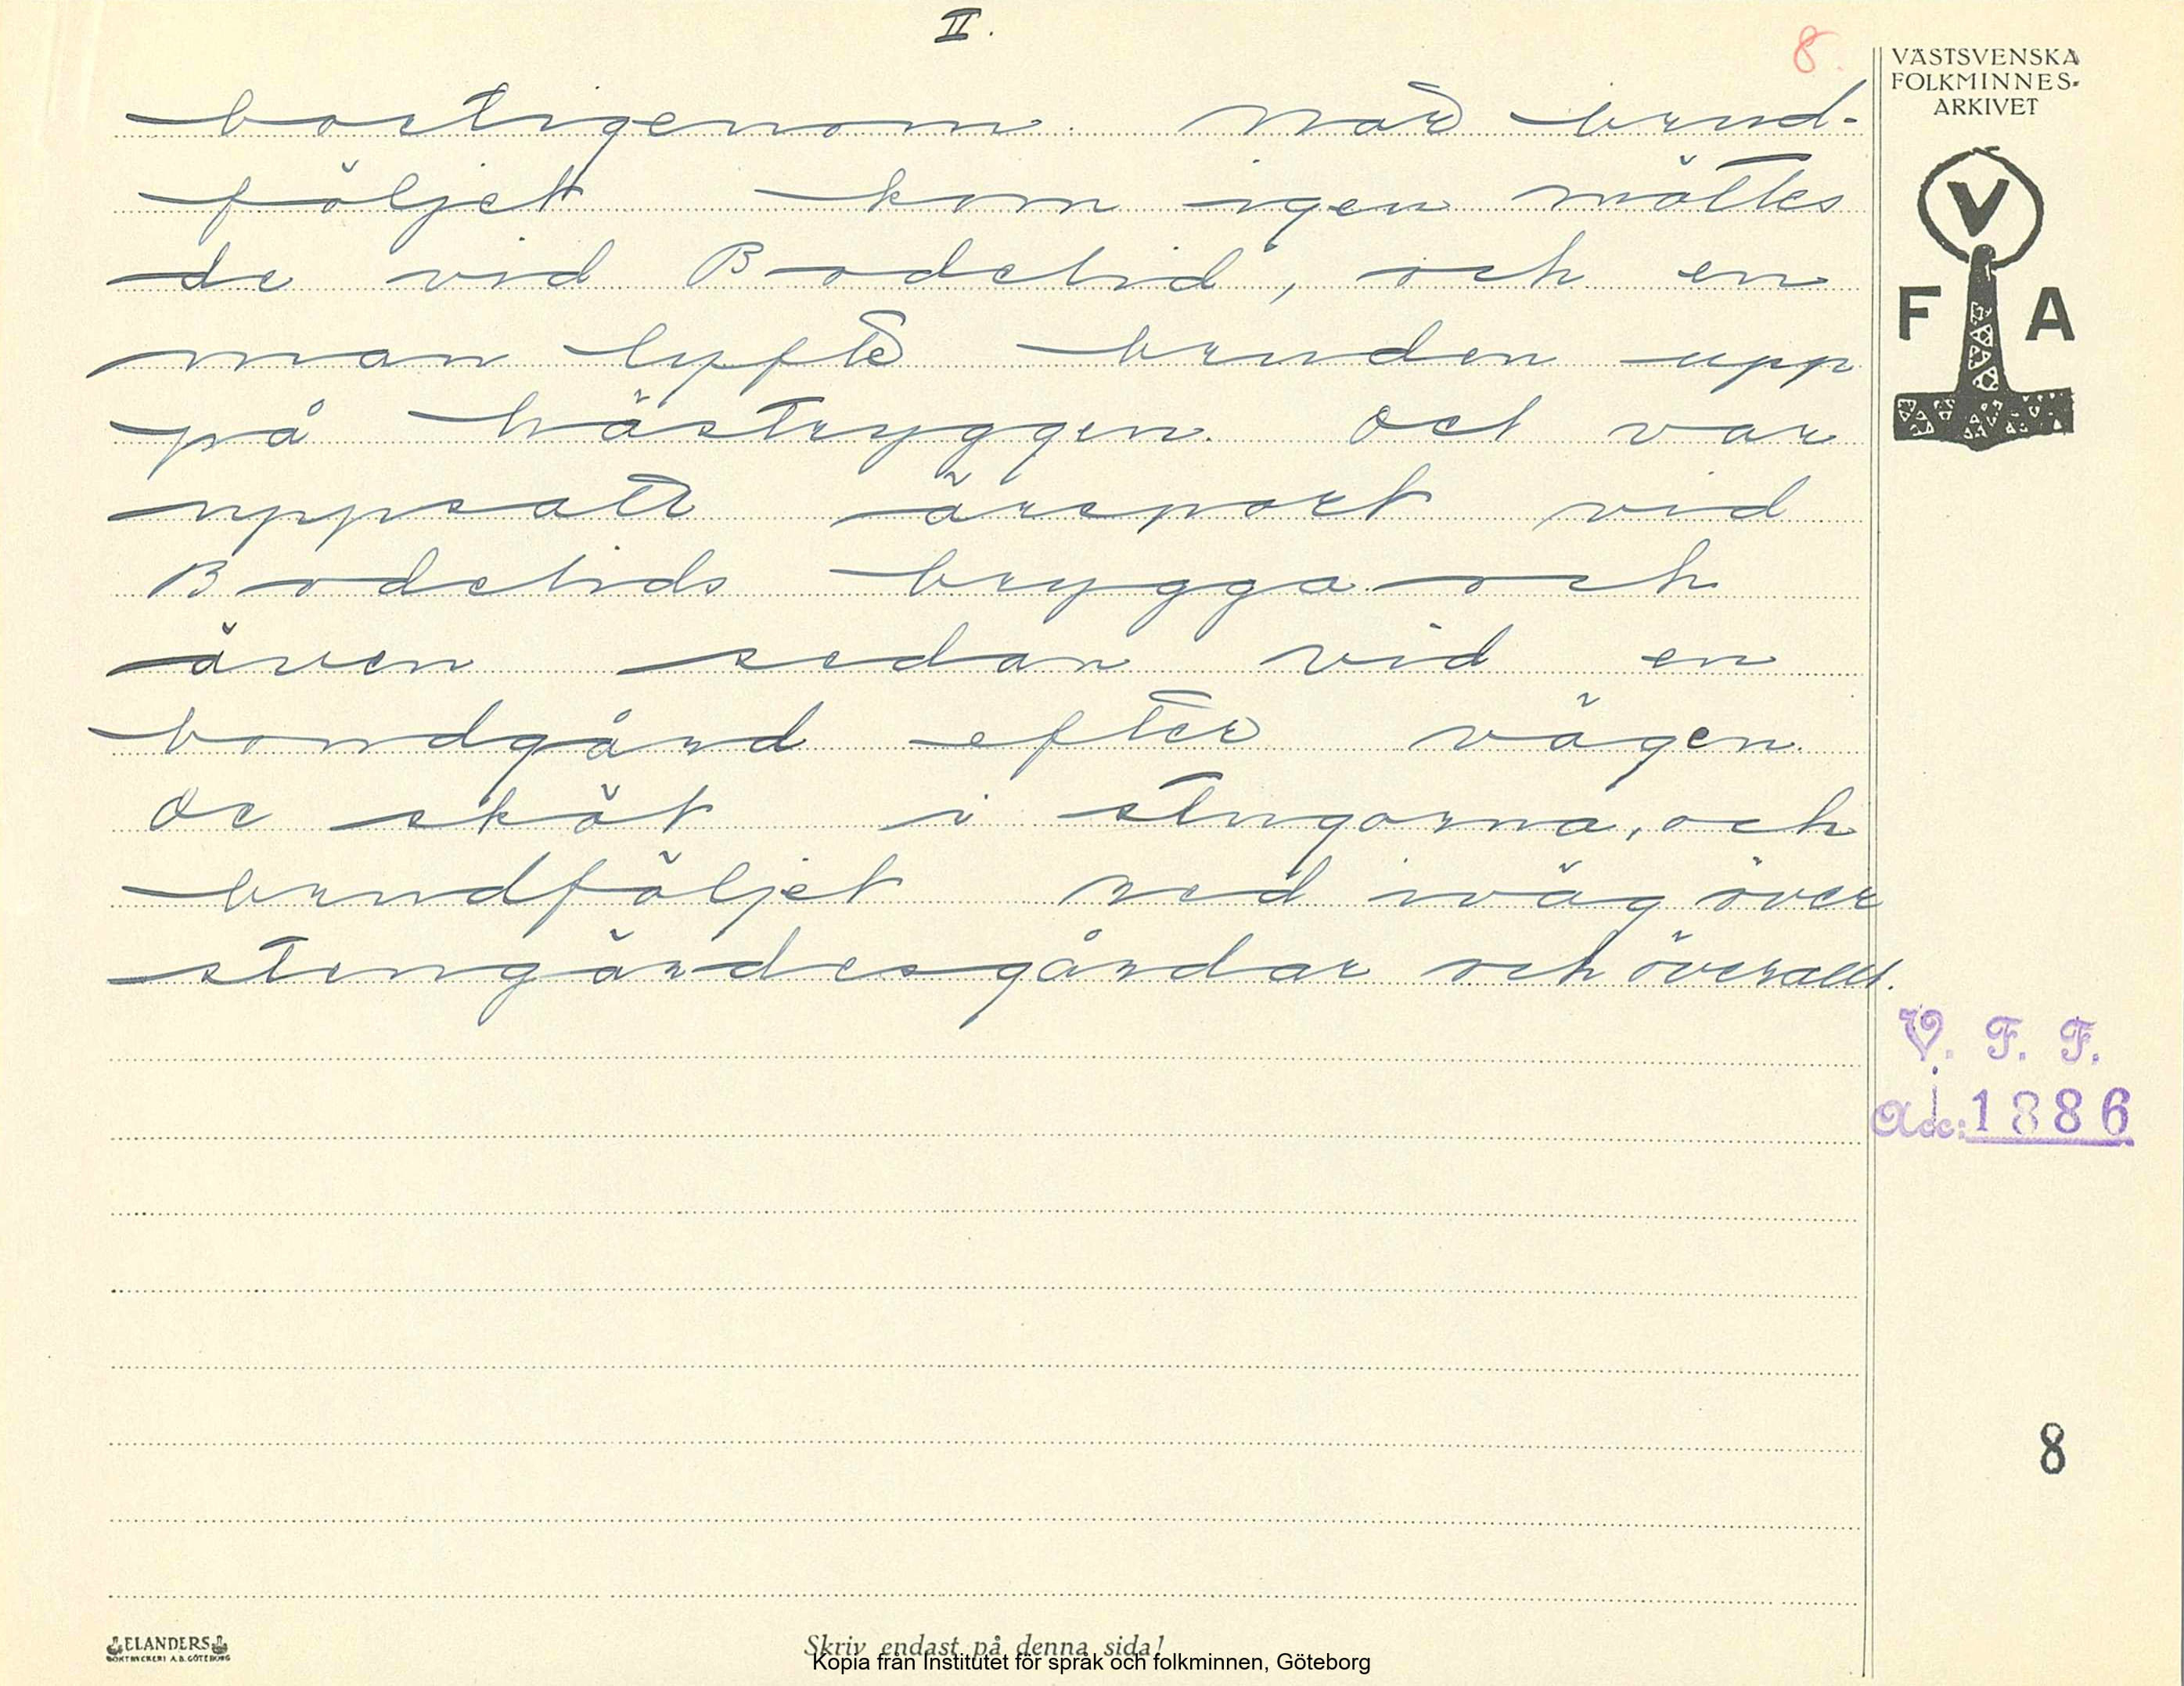 II.
8.
VÄSTSVENSKA
FOLKMINNES-
ARKIVET
V
F A
bortigenom. När brud-
följet kom igen möttes
de vid Bodelid, och en
man lyfte bruden upp
på hästryggen. Det var
uppsatt ärsport vid
Bodelids brygga och
även sedan vid en
bondgård efter vägen.
De sköt i stugorna, och
brudföljet red iväg över
stengärdesgårdar och överallt.
V. F. F.
Acc: 1886
8
ELANDERS
BOKTRYCKERI A.B. GÖTEBORG
Skriv endast på denna sida!
Kopia från Institutet för språk och folkminnen, Göteborg